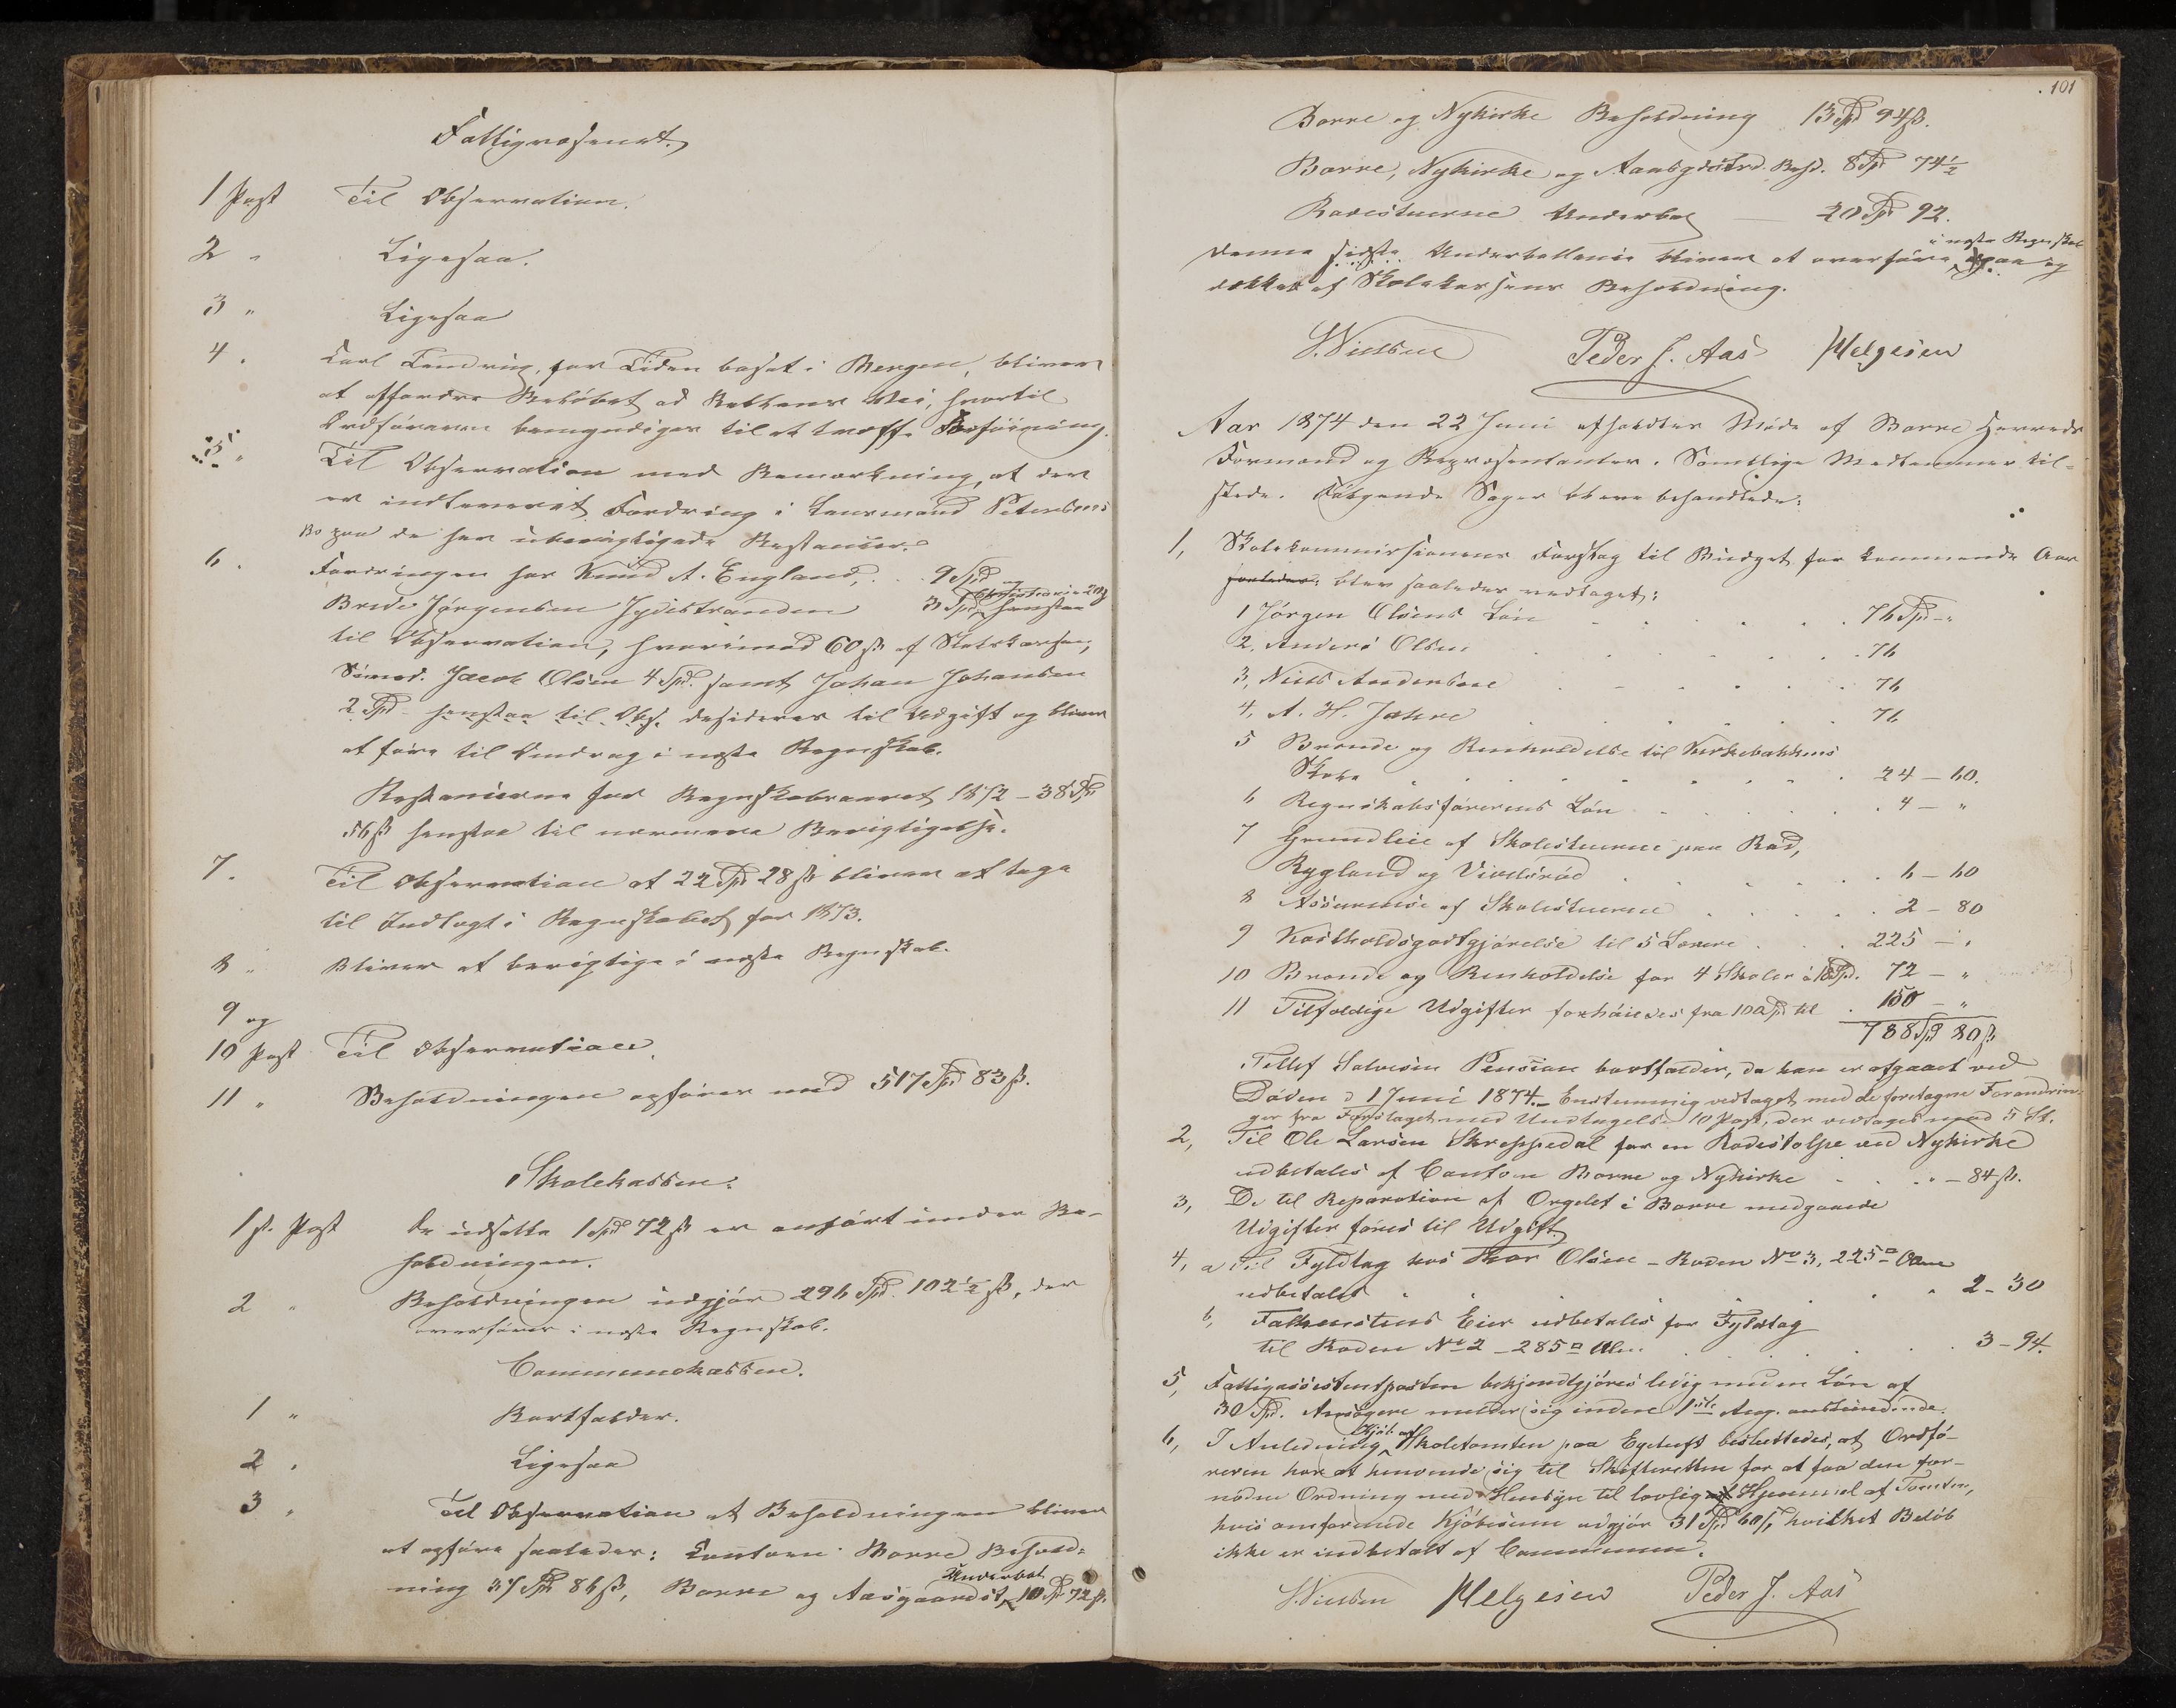 Fattigvæsenet.
1 Post Til Observation.
2 " Ligesaa.
3 " Ligesaa
4 . Carl for Tiden bosat i Bergen, bliver
at affordre Beløbet ad Rettens Vei, hvortil
Ordføreren bemyndiges til at træffe Forføining.
5 " Til Observation med Bemærkning, at der
er indleveret Fordring i Lensmand Petersens
Bo paa de her uberigtigede Restancer.
6 . Fordringen hos Knud A. England, . . 9 Spd og
Brede Jørgensen Jydestranden 3 Spd, henstaa
til Observation, hvorimod 60 ß af Skolekassen,
Sømd. Jacob Olsen 4 Spd. samt Johan Johansen
2 Spd henstaa til Obs. desideres til Udgift og bliver
at føre til Inddrag i næste Regnskab.
Restancerne for Regnskabsaaret 1872 – 38 Spd
56 ß henstaa til nærmere Berigtigelse.
7 . Til Observation at 22 Spd 28 ß bliver at tage
til Indtægt i Regnskabet for 1873.
8 " Bliver at berigtige i næste Regnskab.
9 og
10 Post Til Observation.
11 " Beholdningen opføres med 517 Spd 83 ß.
Skolekassen.
1ste Post De udsatte 1 Spd 72 ß er anført under Be-
holdningen.
2 " Beholdningen udgjør 296 Spd. 102½ ß, der
overføres i næste Regnskab.
Communekassen.
1 " Bortfalder.
2 . Ligesaa
3 " Til Observation at Beholdningen bliver
at opføre saaledes: Contoen Borre Behold-
ning 37 Spd 86 ß, Borre og Aasgaardst. Underbal 10 Spd 72 ß.
101
Borre og Nykirke Beholdning 13 Spd 94 ß.
Borre, Nykirke og Aasgdstrd. Behd. 8 Spd 74½
Rodestuerne Underbal — 20 Spd 92.
Denne sidste Underballance bliver at overføre i næste Regnskab og
dækkes af Skolekassens Beholdning.
S. Nielsen Peder J. Aas Helgesen
Aar 1874 den 22 Juni afholdtes Møde af Borre Herreds
Formænd og Repræsentanter. Samtlige Medlemmer til-
stede. Følgende Sager bleve behandlede:
1, Skolekommissionens Forslag til Budget for kommende Aar
blev saaledes vedtaget:
1 Jørgen Olsens Løn . . . . . 76 Spd – "
2, Anders Olsen . . . . . 76
3, Niels Andersen . . . . . 76
4, A. H. Jahre . . . . . 76
5 Brænde og Renholdelse til Kirkebakkens
Skole . . . . . 24 – 60.
6 Regnskabsførerens Løn . . . . . 4 – "
7 Grundleie af Skolestuerne paa Rød,
Rygland og Vivelsrød . . . . . 6 – 60
8 Assurance af Skolestuerne . . . . . 2 – 80
9 Kostholdsgodtgjørelse til 5 Lærere . . . 225 – "
10 Brænde og Renholdelse for 4 Skoler à 18 Spd. 72 – "
11 Tilfældige Udgifter forhøiedes fra 100 Spd til . 150 – "
788 Spd 80 ß
Tellef Salvesen Pension bortfalder, da han er afgaaet ved
Døden d 1 Juni 1874. – Enstemmig vedtaget med de foretagne Forandrin-
ger fra Forslaget med Undtagelse 10 Post, der vedtages mod 5 St.
2, Til Ole Larsen Skreppedal for en Rodestolpe ved Nykirke
udbetales af Contoen Borre og Nykirke . . . " – 84 ß.
3, De til Reparation af Orgelet i Borre medgaaede
Udgifter føres til Udgift
4, a Til Fyldtag hos Thor Olsen – Roden No 3, 225 □ Alen
udbetales . . . . . 2 – 30
b, Falkenstens Eier udbetales for Fyldtag
til Roden No 2 – 285 □ Alen . . . . . 3 – 94.
5, Fattigassistentposten bekjendtgjøres ledig med en Løn af
30 Spd. Ansøgere melder sig inden 1ste Aug. anstundende.
6, I Anledning Kjøb af Skoletomten paa Egetuft besluttedes, at Ordfø-
reren har at henvende sig til Skifteretten for at faa den for-
nødne Ordning med Hensyn til lovlig Hjemmel af Tomten,
hvis omførmede Kjøbesum udgjør 31 Spd 60 ß, hvilket Beløb
ikke er indbetalt af Communen.
S. Nielsen Helgesen Peder J. Aas